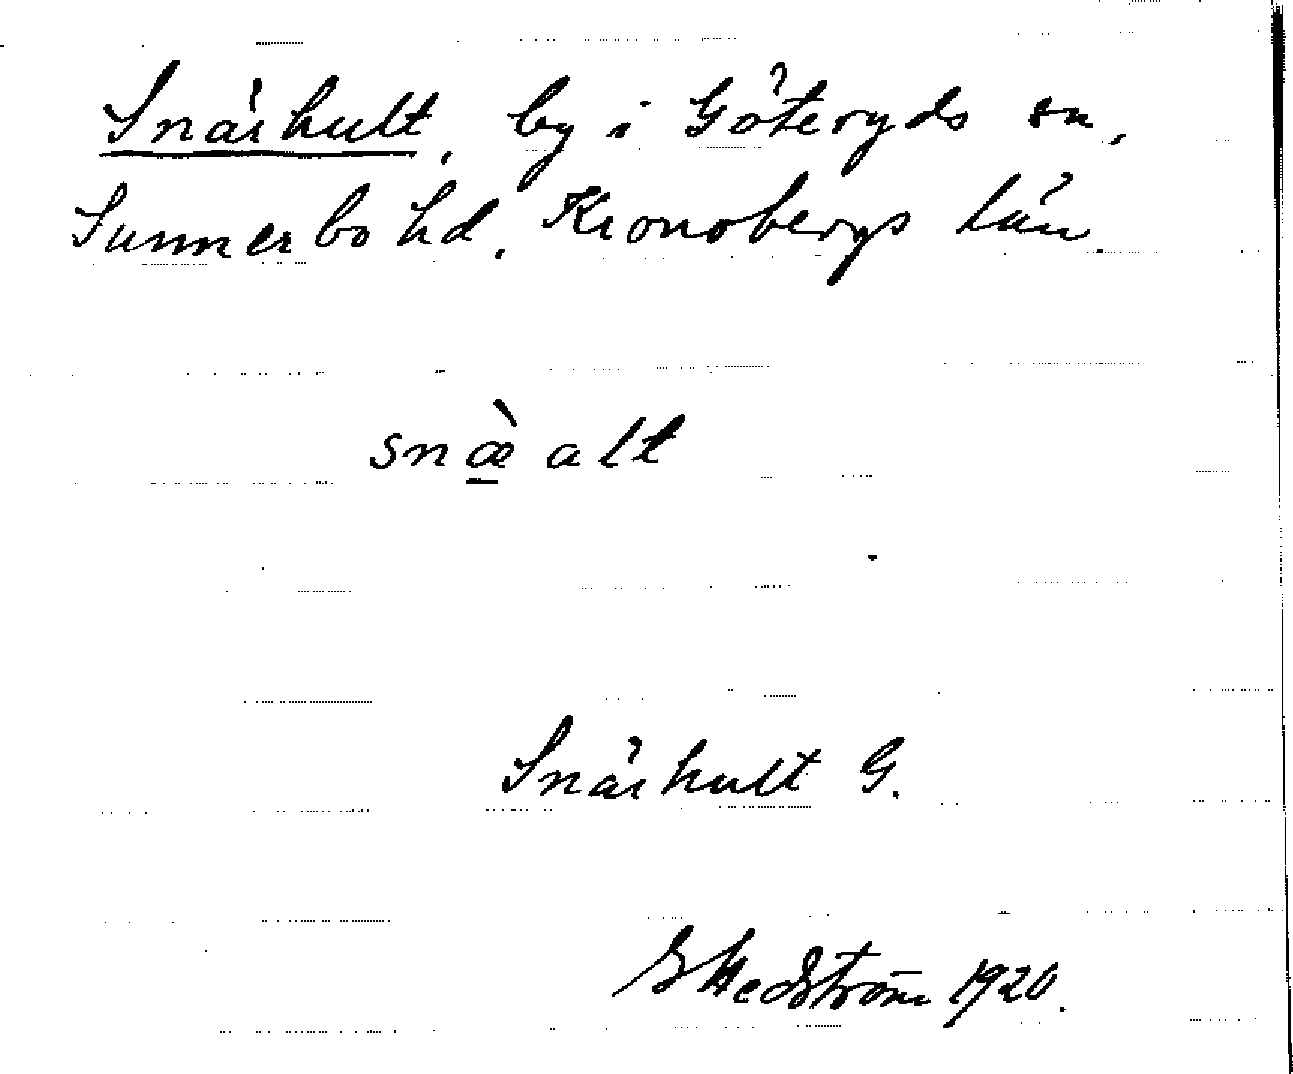 Snärhult, by i Göteryds sn,
Sunnerbo hd, Kronobergs län.
snæ̀ alt
Snärhult G.
G Hedström 1920.